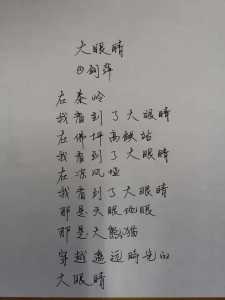 大眼睛
在秦岭
我看到了大眼睛
在佛坪高铁站
我看到了大眼睛
在凉风垭
我看到了大眼睛
那是天眼地眼
那是大熊猫
穿越遥远时光的
大眼睛